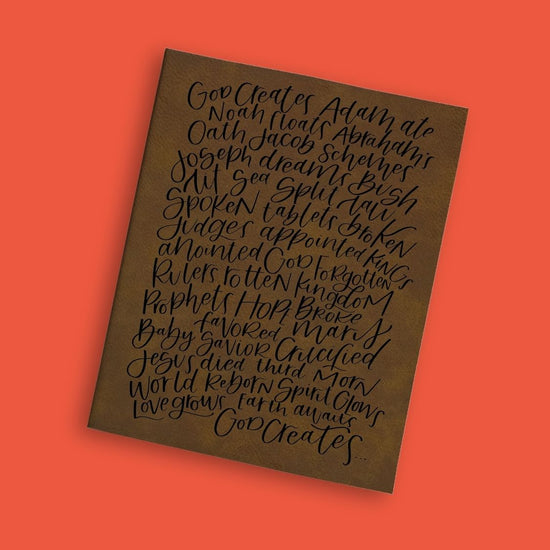 God Creates Adam ate
Noah floats Abraham's
Oath Jacob schemes
Joseph dreams Bush
Lit Sea Split Law
Spoken tablets broken
Judges appointed Kings
anointed God Forgotten
Rulers rotten Kingdom
Prophets Hope Broke
favored Mary
Baby Savior Crucified
Jesus died third Morn
World Reborn Spirit Glows
Love grows Earth awaits
God Creates...